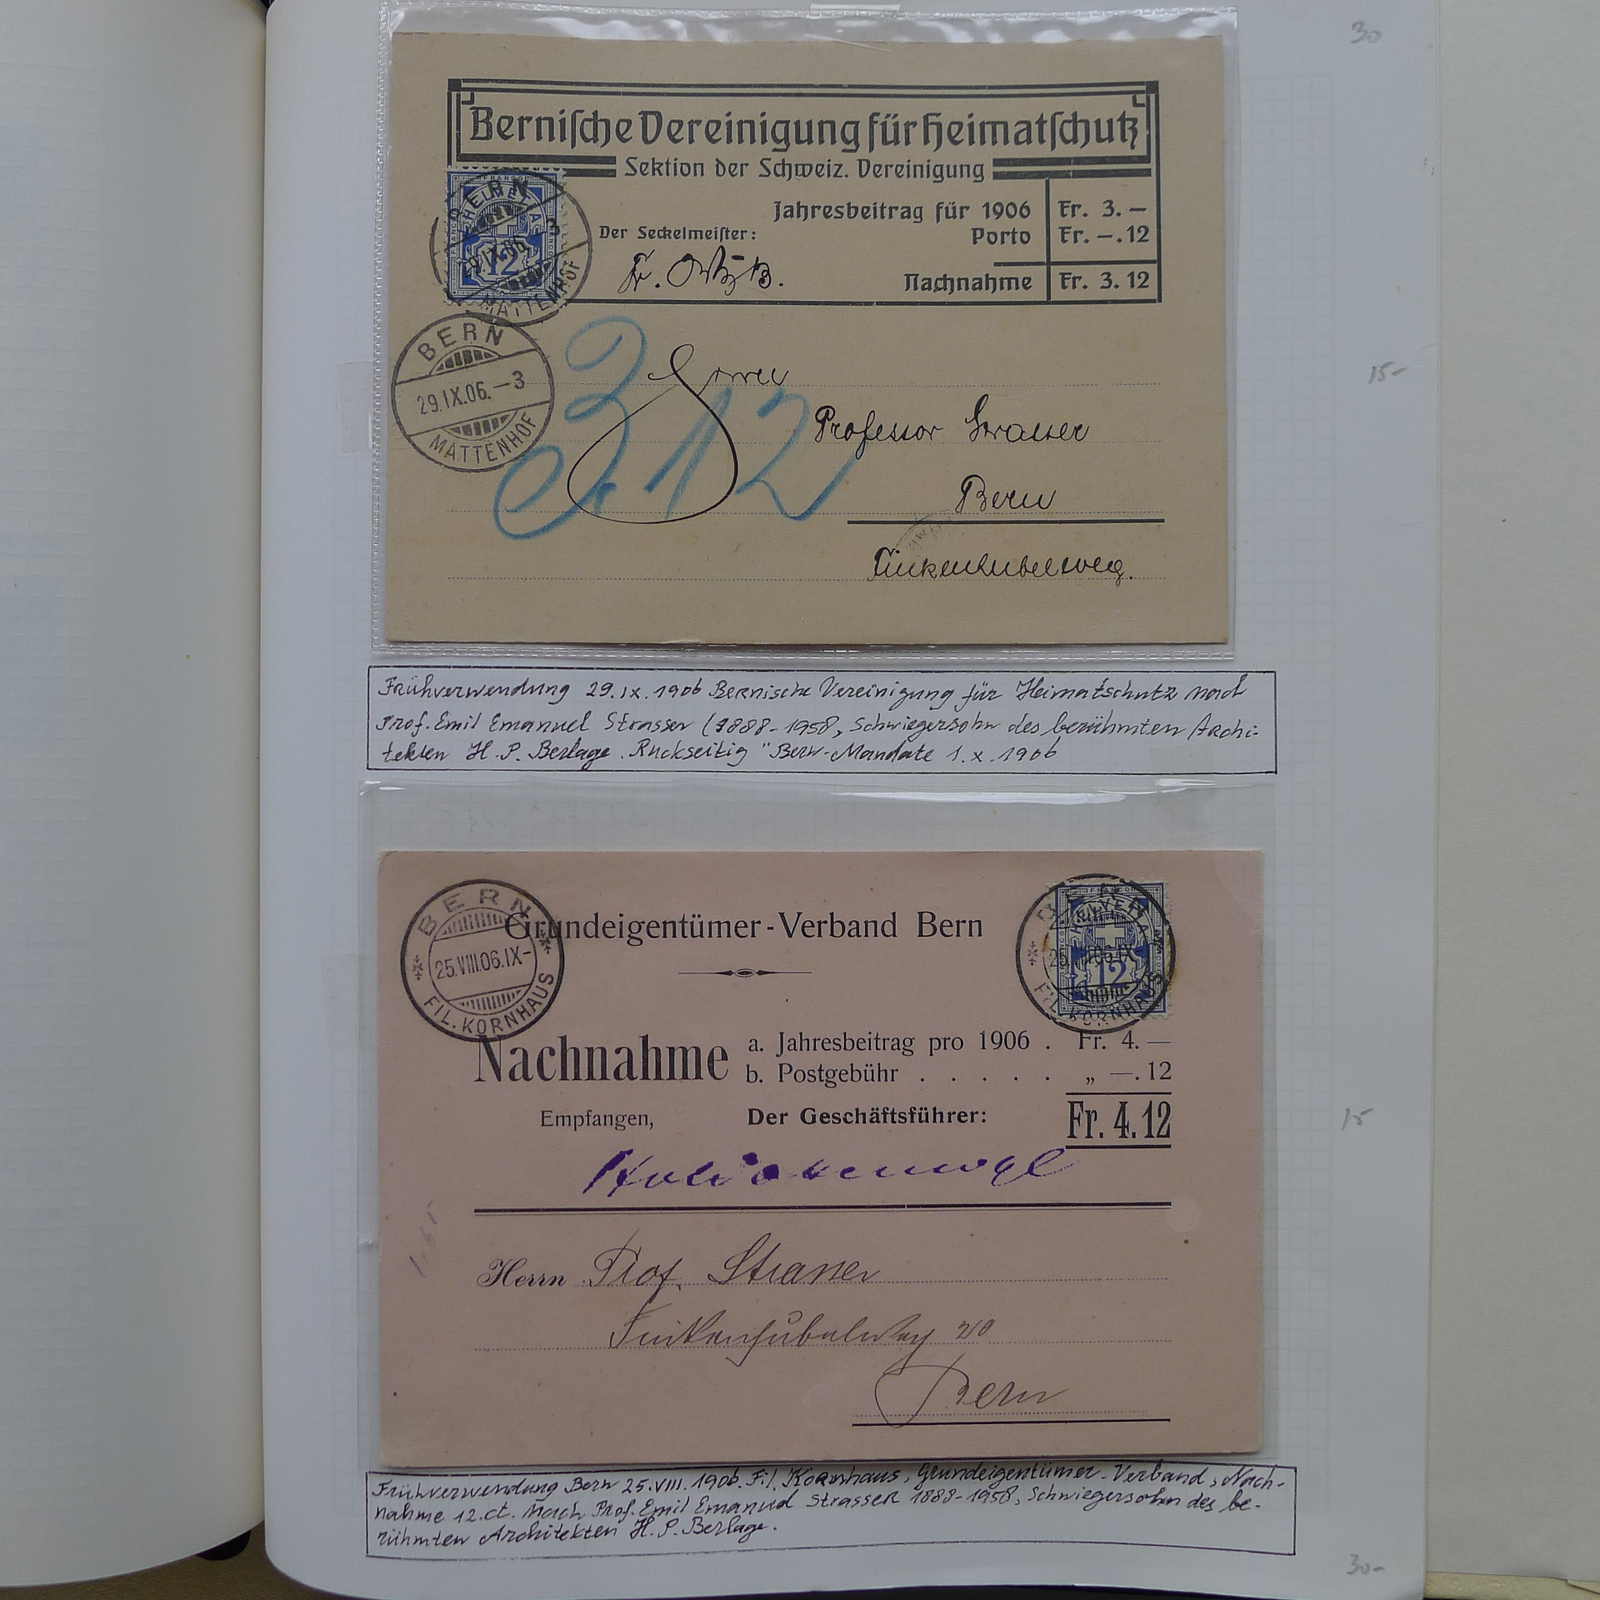 30
Bernische Vereinigung für Heimatschutz
Sektion der Schweiz. Vereinigung
Jahresbeitrag für 1906 Fr. 3.—
Der Seckelmeister: Porto Fr. —.12
Nachnahme Fr. 3. 12
HELVETIA
12
BERN
29.IX.06. 3
MATTENHOF
BERN
29.IX.06.—3
MATTENHOF
3.12
15-
Herrn
Professor Strasser
Bern
Finkenhubelweg.
Frühverwendung 29.IX.1906 Bernische Vereinigung für Heimatschutz nach
Prof. Emil Emanuel Strasser (1888-1958, Schwiegersohn des berühmten Archi-
tekten H. P. Berlage. Rückseitig "Bern-Mandate 1.X.1906
BERN
25.VIII.06.IX-
FIL. KORNHAUS
Grundeigentümer-Verband Bern
HELVETIA
12
BERN
25.VIII.06.IX
FIL. KORNHAUS
Nachnahme a. Jahresbeitrag pro 1906 . Fr. 4.—
b. Postgebühr . . . . . „ —.12
Empfangen, Der Geschäftsführer: Fr. 4.12
15
Herrn Prof. Strasser
Finkenhubelweg 20
Bern
Frühverwendung Bern 25.VIII.1906. Fil. Kornhaus, Grundeigentümer-Verband, Nach-
nahme 12.ct. nach Prof. Emil Emanuel Strasser 1888-1958, Schwiegersohn des be-
rühmten Architekten H. P. Berlage.
30-